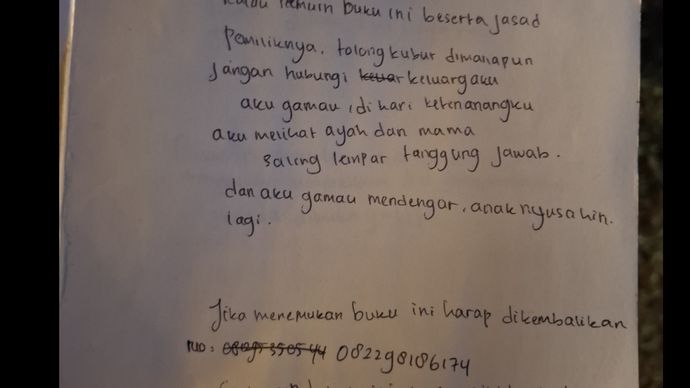 kalau temuin buku ini beserta jasad
pemiliknya, tolong kubur dimanapun
jangan hubungi keluargaku
aku gamau, di hari ketenanangku
aku melihat ayah dan mama
saling lempar tanggung jawab.
dan aku gamau mendengar, anak nyusahin.
lagi.
Jika menemukan buku ini harap dikembalikan
NO: 082298186174